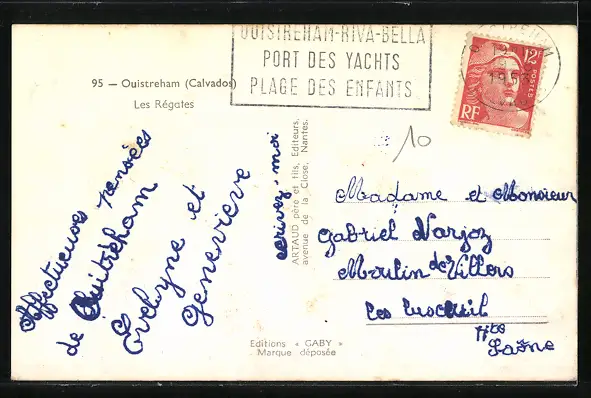 95 — Ouistreham (Calvados)
Les Régates
OUISTREHAM-RIVA-BELLA
PORT DES YACHTS
PLAGE DES ENFANTS
12F
POSTES
RF
10
Affectueuses pensées
de Ouistreham
Evelyne et
Geneviève
écrivez-moi
ARTAUD père et fils, Editeurs,
avenue de la Close, Nantes.
Madame et Monsieur
Gabriel Narjoz
Moulin de Villers
les Luxeuil
Hte
Saône
Editions « GABY »
Marque déposée